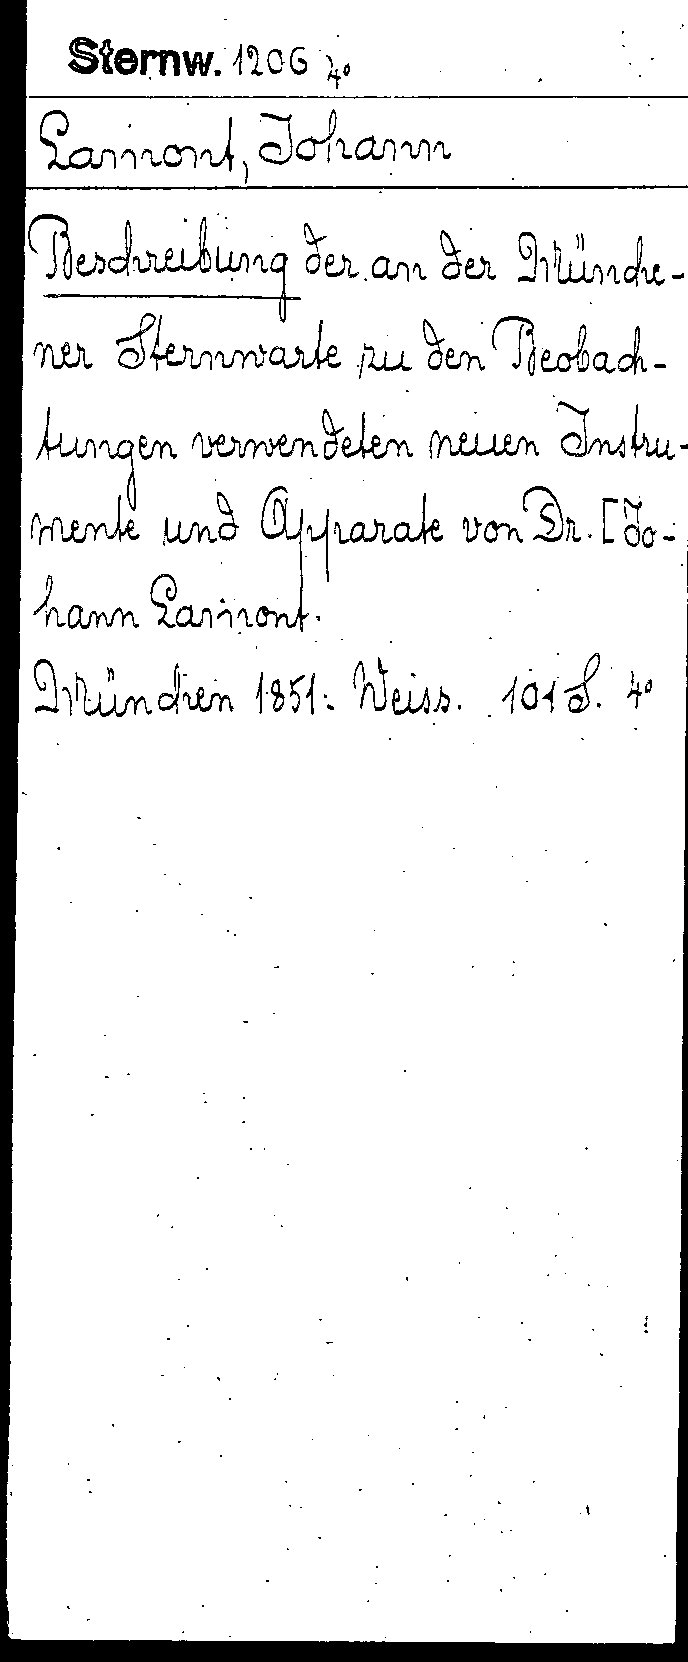 Sternw. 1206 4°
Lamont, Johann
Beschreibung der an der Münche-
ner Sternwarte zu den Beobach-
tungen verwendeten neuen Instru-
mente und Apparate von Dr. [Jo-
hann Lamont.
München 1851: Weiss. 101 S. 4°